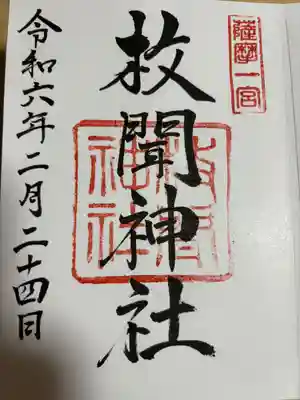 薩摩一宮
枚聞神社
枚聞神社
令和六年二月二十四日